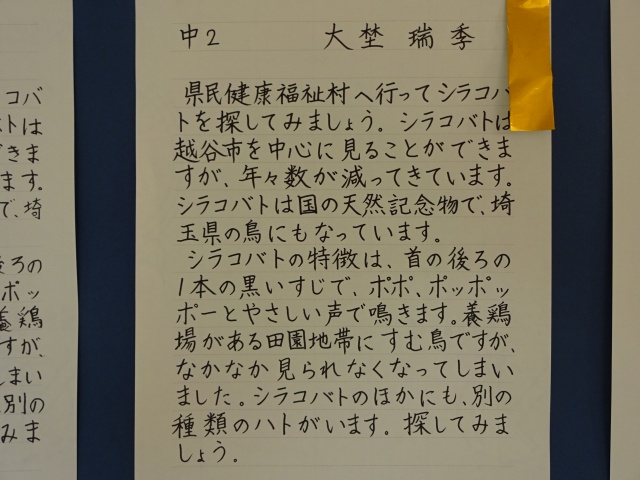 中2 大埜 瑞季
県民健康福祉村へ行ってシラコバ
トを探してみましょう。シラコバトは
越谷市を中心に見ることができま
すが、年々数が減ってきています。
シラコバトは国の天然記念物で、埼
玉県の鳥にもなっています。
シラコバトの特徴は、首の後ろの
1本の黒いすじで、ポポ、ポッポッ
ポーとやさしい声で鳴きます。養鶏
場がある田園地帯にすむ鳥ですが、
なかなか見られなくなってしまい
ました。シラコバトのほかにも、別の
種類のハトがいます。探してみま
しょう。
コバ
トは
きま
ます。
で、埼
後ろの
ポッ
養鶏
すが、
まい
別の
みま